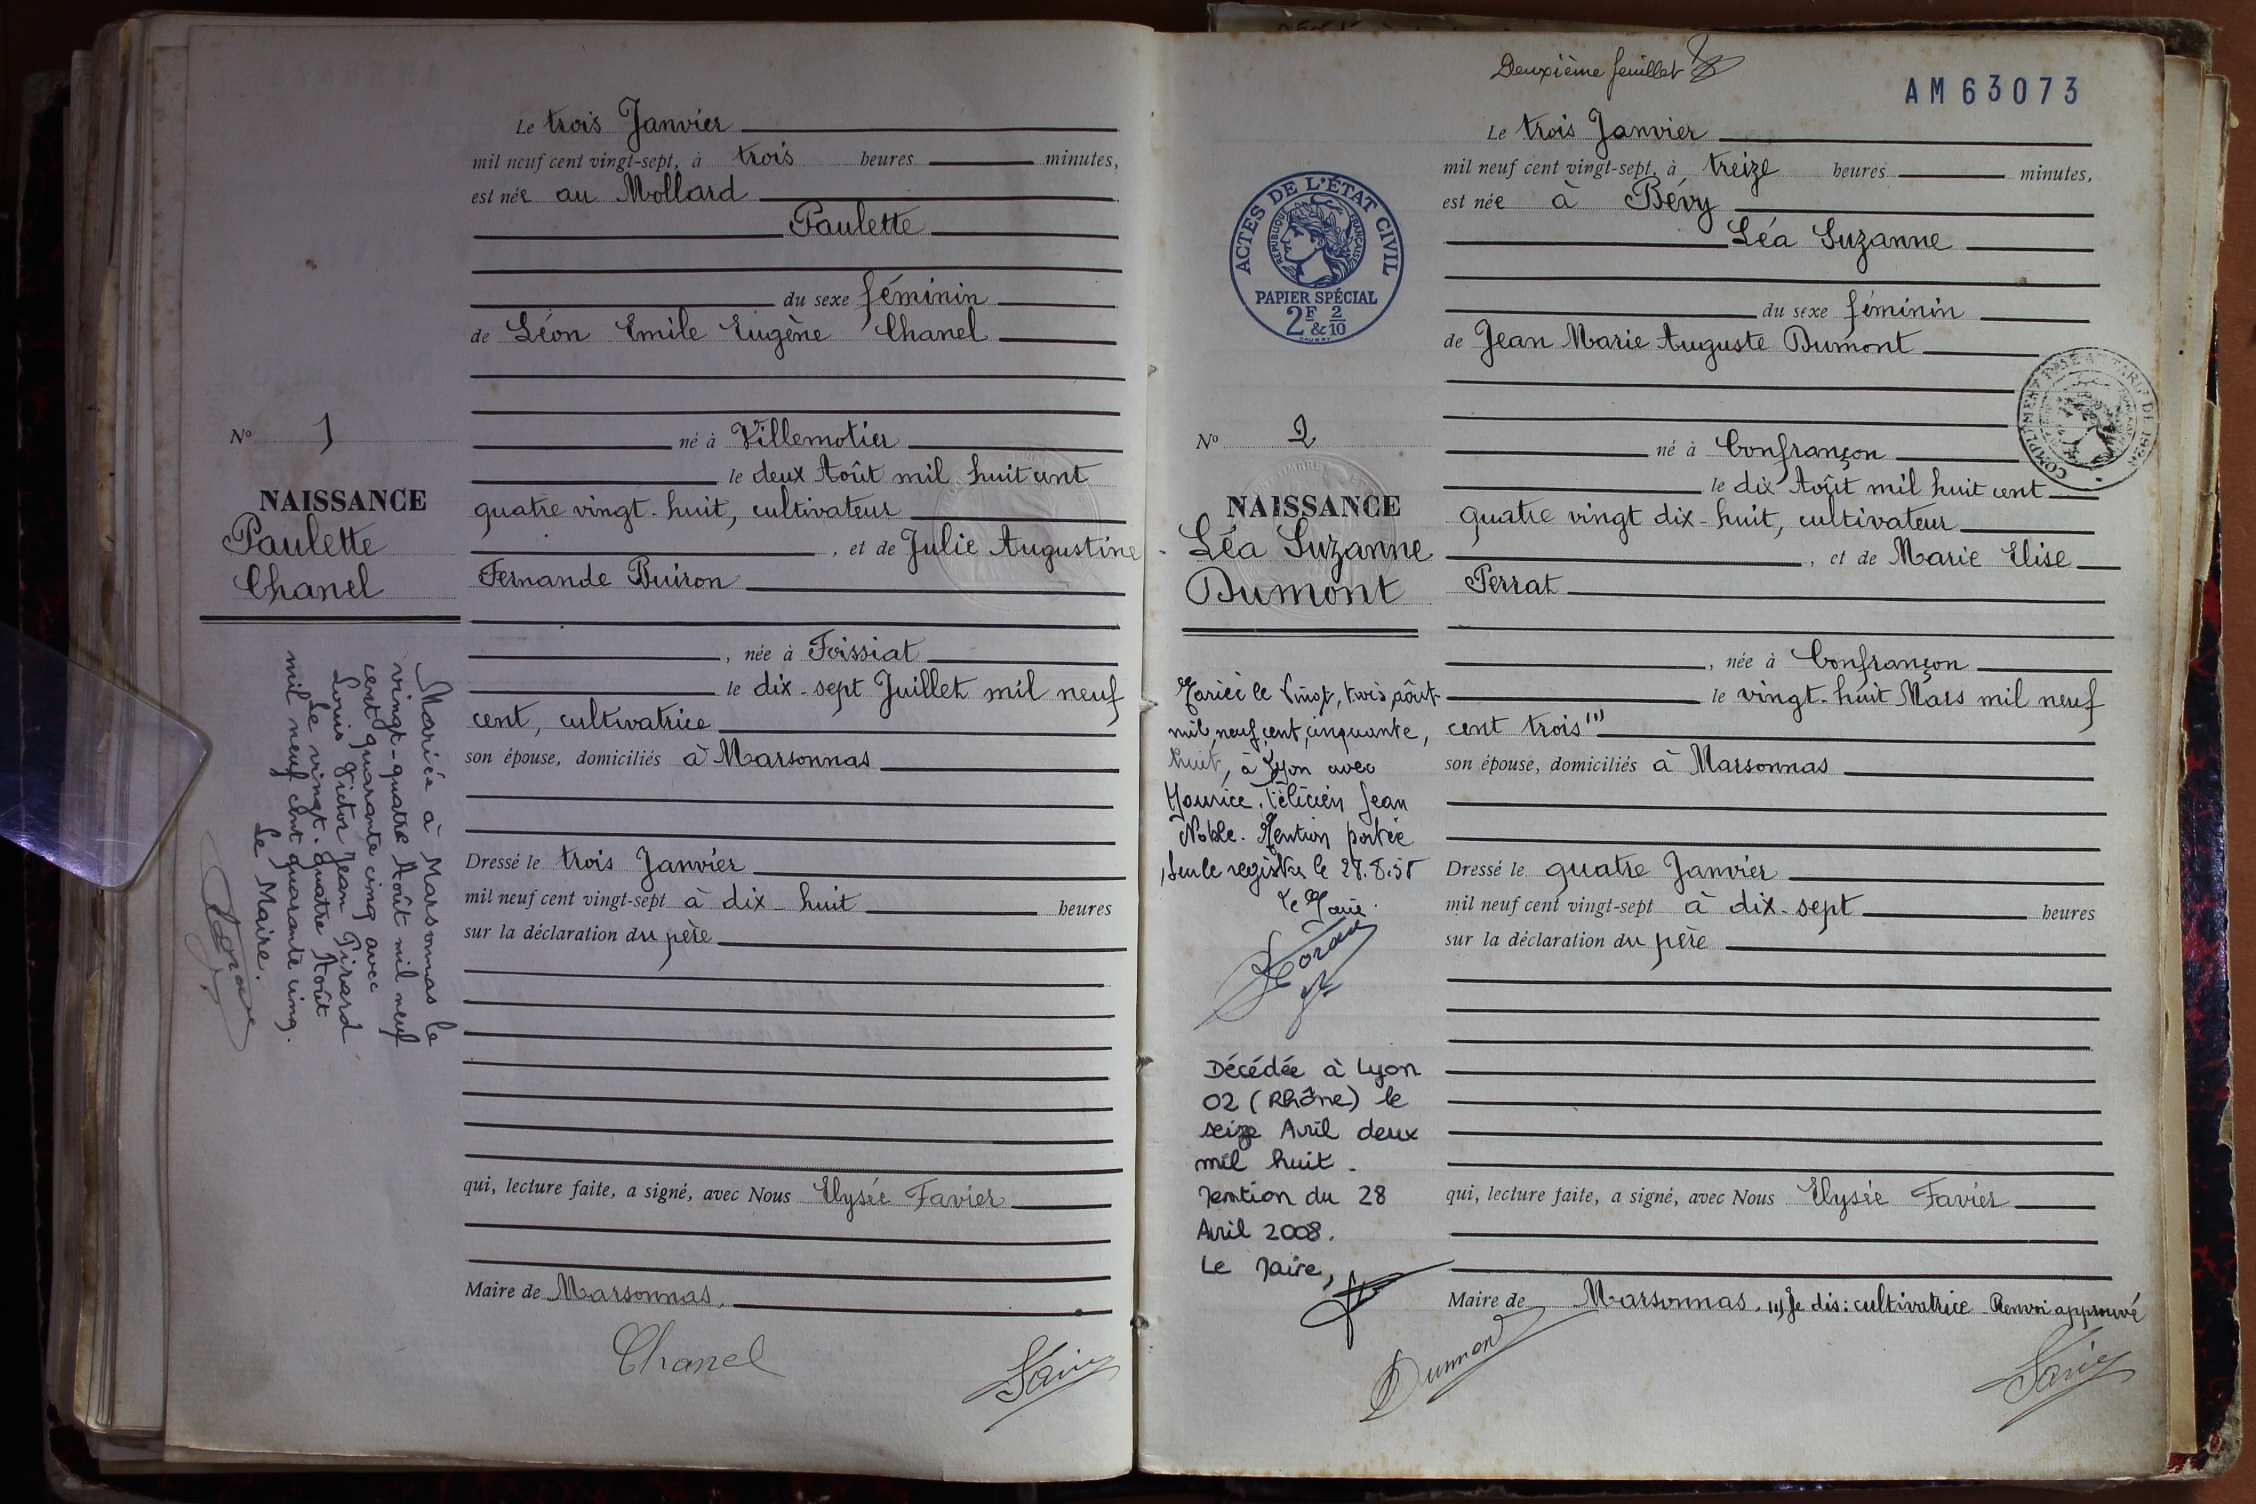 Le trois Janvier
mil neuf cent vingt-sept, à trois heures minutes,
est née au Mollard
Paulette
du sexe féminin
de Léon Emile Eugène Chanel
né à Villemotier
le deux Août mil huit cent
quatre vingt-huit, cultivateur
, et de Julie Augustine
Fernande Buiron
, née à Foissiat
le dix-sept Juillet mil neuf
cent, cultivatrice
son épouse, domiciliés à Marsonnas
Dressé le trois Janvier
mil neuf cent vingt-sept à dix-huit heures
sur la déclaration du père
qui, lecture faite, a signé, avec Nous Elysée Favier
Maire de Marsonnas.
Chanel
No 1
NAISSANCE
Paulette
Chanel
Mariée à Marsonnas le
vingt-quatre Août mil neuf
cent quarante cinq avec
Louis Victor Jean Pirard
Le vingt-quatre Août
mil neuf cent quarante cinq.
Le Maire.
Deuxième feuillet
AM63073
Le trois Janvier
mil neuf cent vingt-sept, à treize heures minutes,
est née à Bévy
Léa Suzanne
du sexe féminin
de Jean Marie Auguste Dumont
né à Confrançon
le dix Août mil huit cent
quatre vingt dix-huit, cultivateur
, et de Marie Elise
Perrat
, née à Confrançon
le vingt-huit Mars mil neuf
cent trois (1)
son épouse, domiciliés à Marsonnas
Dressé le quatre Janvier
mil neuf cent vingt-sept à dix-sept heures
sur la déclaration du père
qui, lecture faite, a signé, avec Nous Elysée Favier
Maire de Marsonnas. (1) Je dis: cultivatrice Renvoi approuvé
Dumont
ACTES DE L'ÉTAT CIVIL
RÉPUBLIQUE FRANÇAISE
PAPIER SPÉCIAL
2F & 2/10
No 2
NAISSANCE
Léa Suzanne
Dumont
Mariée le vingt, trois août
mil, neuf, cent, cinquante,
huit, à Lyon avec
Maurice, Félicien Jean
Noble. Mention portée
sur le registre le 28.8.58
Le Maire.
Décédée à Lyon
02 (Rhône) le
seize Avril deux
mil huit.
Mention du 28
Avril 2008.
Le Maire,